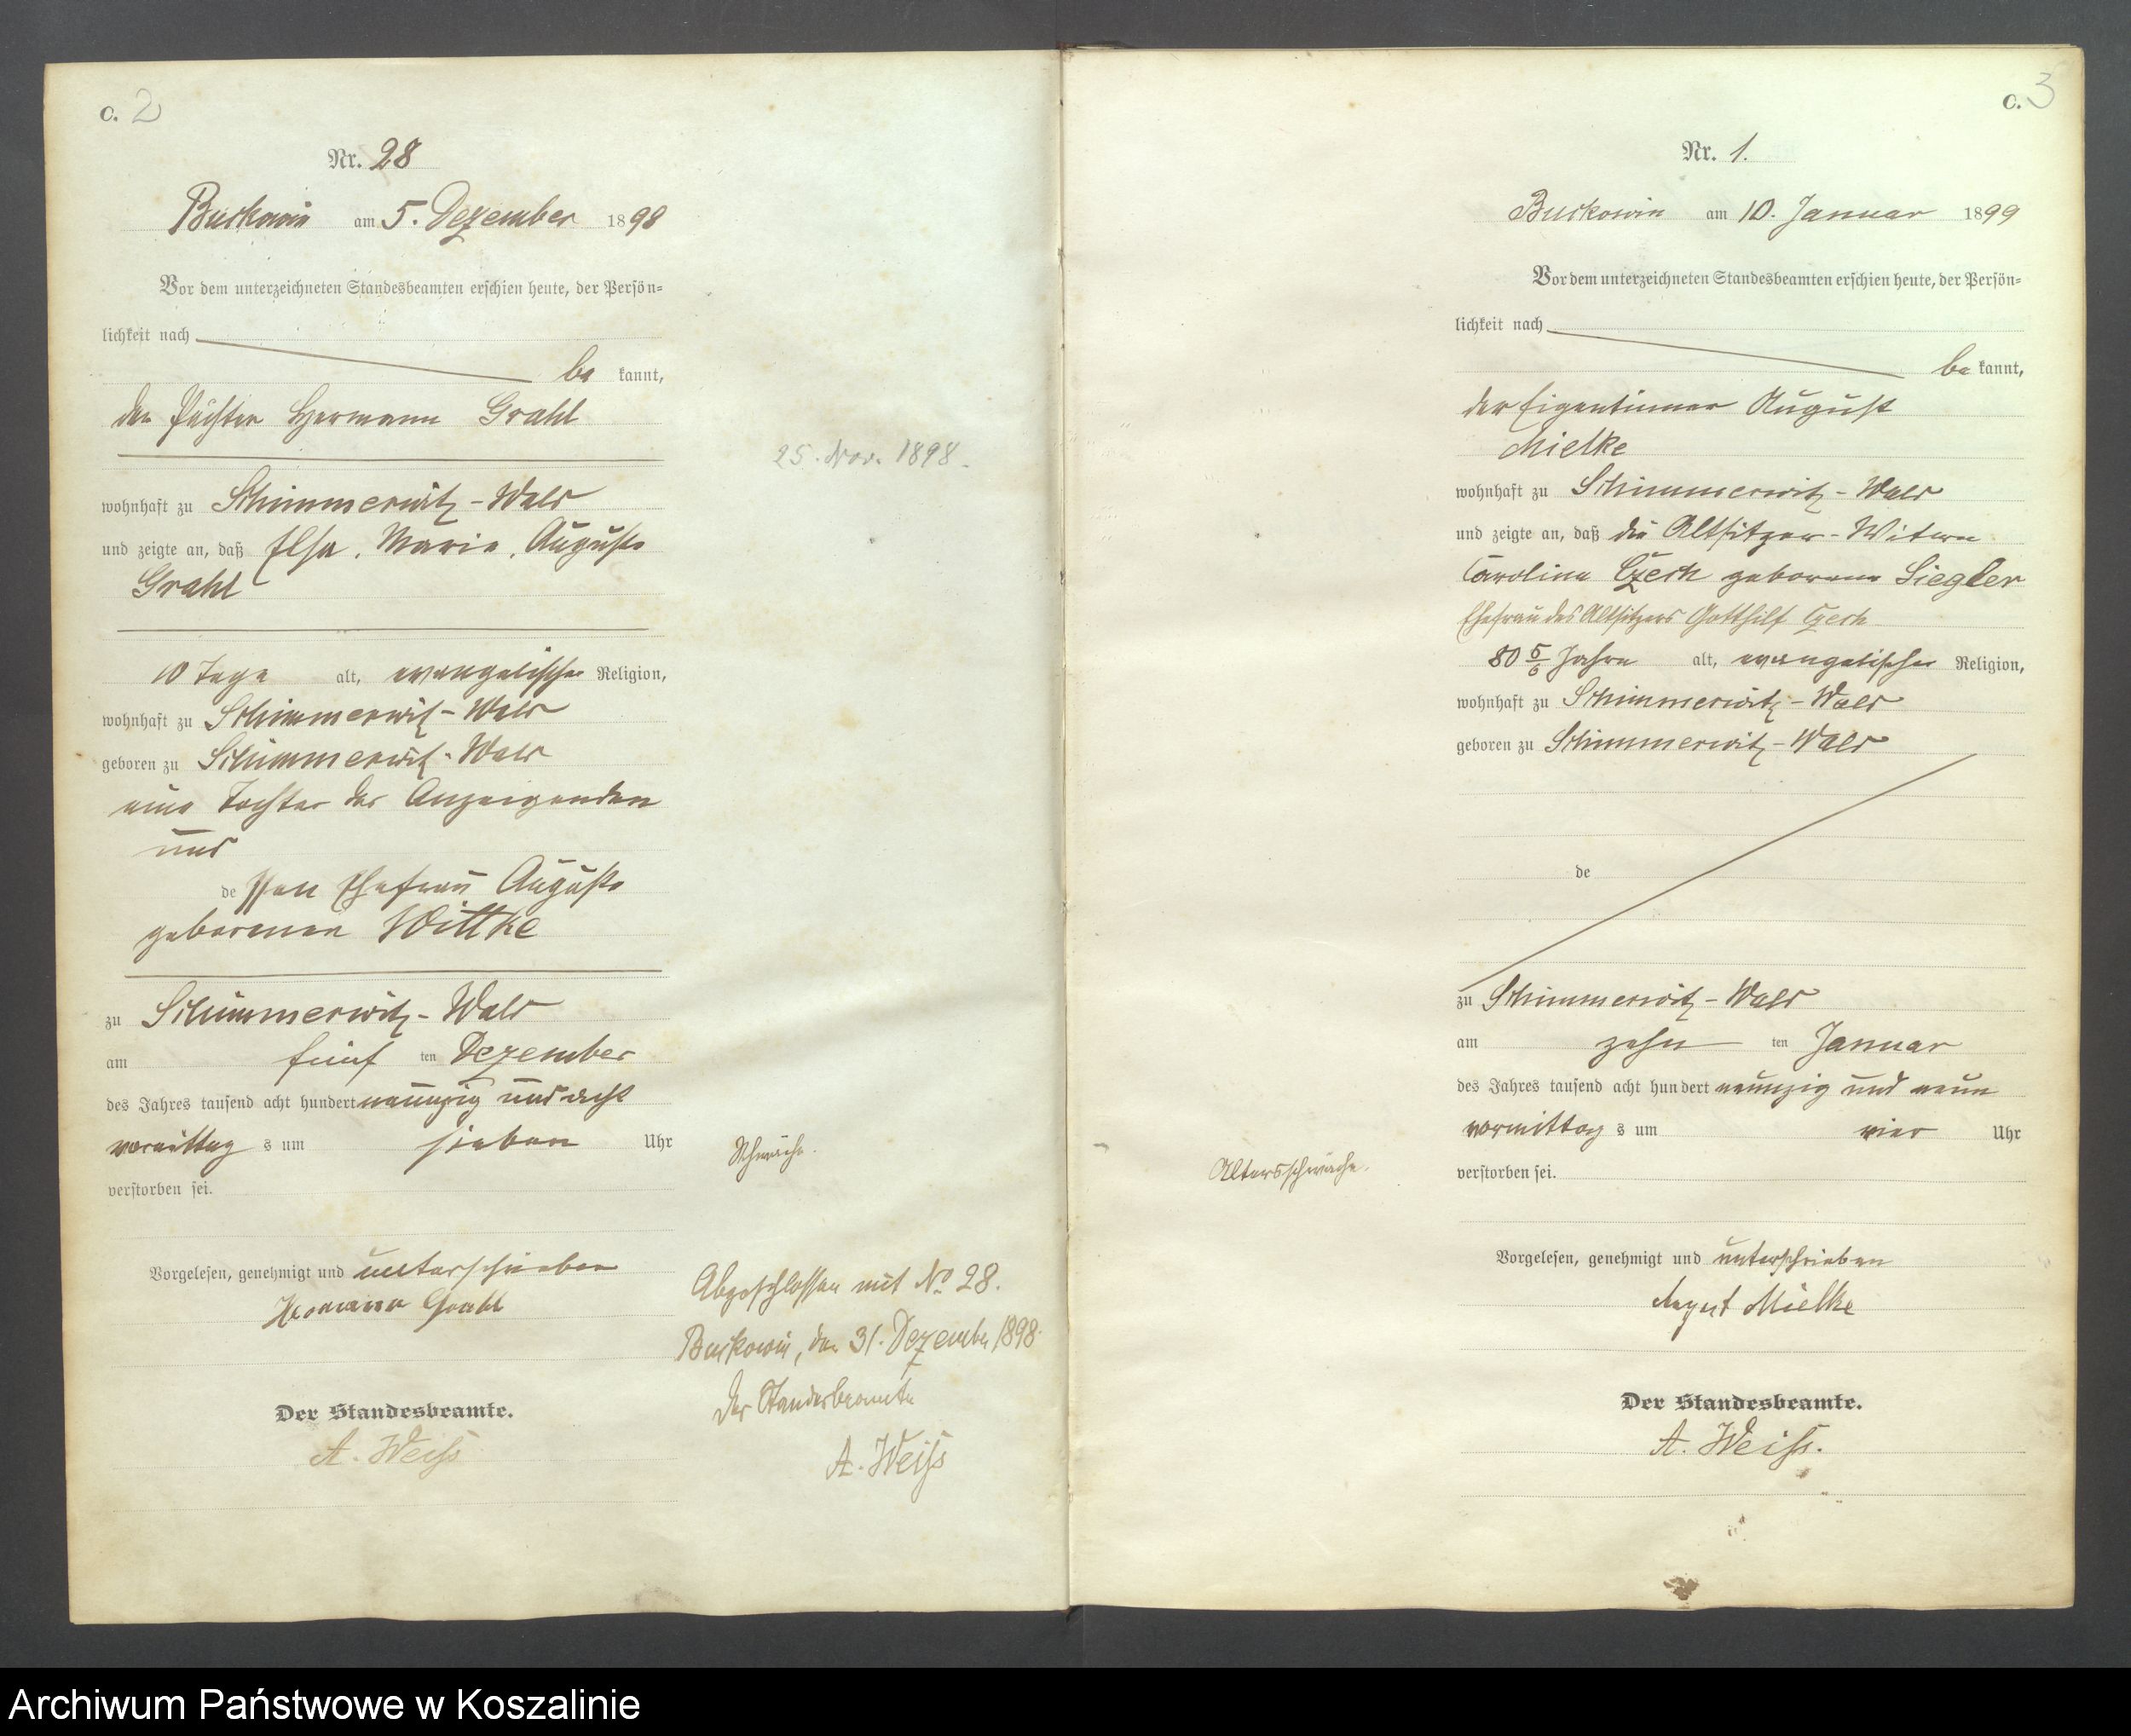 C. 2
Nr. 28
Buckowin am 5. Dezember 1898
Vor dem unterzeichneten Standesbeamten erschien heute, der Persön-
lichkeit nach
be kannt,
der Pächter Hermann Grahl
wohnhaft zu Schimmerwitz-Wald
und zeigte an, daß Elsa, Marie, Auguste
Grahl
10 Tage alt, evangelischer Religion,
wohnhaft zu Schimmerwitz-Wald
geboren zu Schimmerwitz-Wald
eine Tochter des Anzeigenden
und
de ssen Ehefrau Auguste
geborenen Wittke
zu Schimmerwitz-Wald
am fünf ten Dezember
des Jahres tausend acht hundert neunzig und acht
vormittag s um sieben Uhr
verstorben sei.
Vorgelesen, genehmigt und unterschrieben
Hermann Grahl
Der Standesbeamte.
A. Weiss
25. Nov. 1898.
Schwäche.
Abgeschlossen mit No 28.
Buckowin, den 31. Dezember 1898.
Der Standesbeamte
A. Weiss
C. 3
Nr. 1.
Buckowin am 10. Januar 1899
Vor dem unterzeichneten Standesbeamten erschien heute, der Persön-
lichkeit nach
be kannt,
der Eigentümer August
Mielke
wohnhaft zu Schimmerwitz-Wald
und zeigte an, daß die Altsitzer-Witwe
Caroline Czech geborene Siegler
Ehefrau des Altsitzers Gotthilf Czech
80 5/6 Jahre alt, evangelischer Religion,
wohnhaft zu Schimmerwitz-Wald
geboren zu Schimmerwitz-Wald
de
zu Schimmerwitz-Wald
am zehn ten Januar
des Jahres tausend acht hundert neunzig und neun
vormittag s um vier Uhr
verstorben sei.
Altersschwäche.
Vorgelesen, genehmigt und unterschrieben
August Mielke
Der Standesbeamte.
A. Weiss.
Archiwum Państwowe w Koszalinie